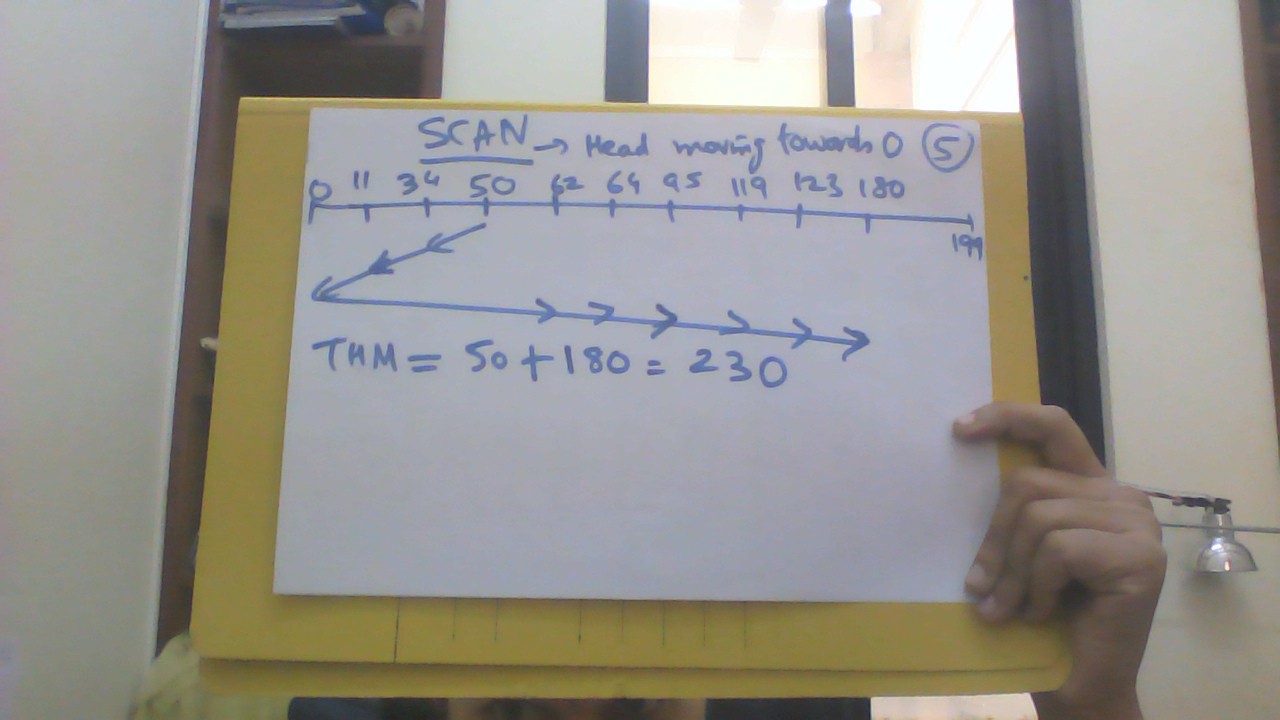 SCAN → Head moving towards 0 5
0 11 34 50 62 64 95 119 123 180
199
THM = 50 + 180 = 230